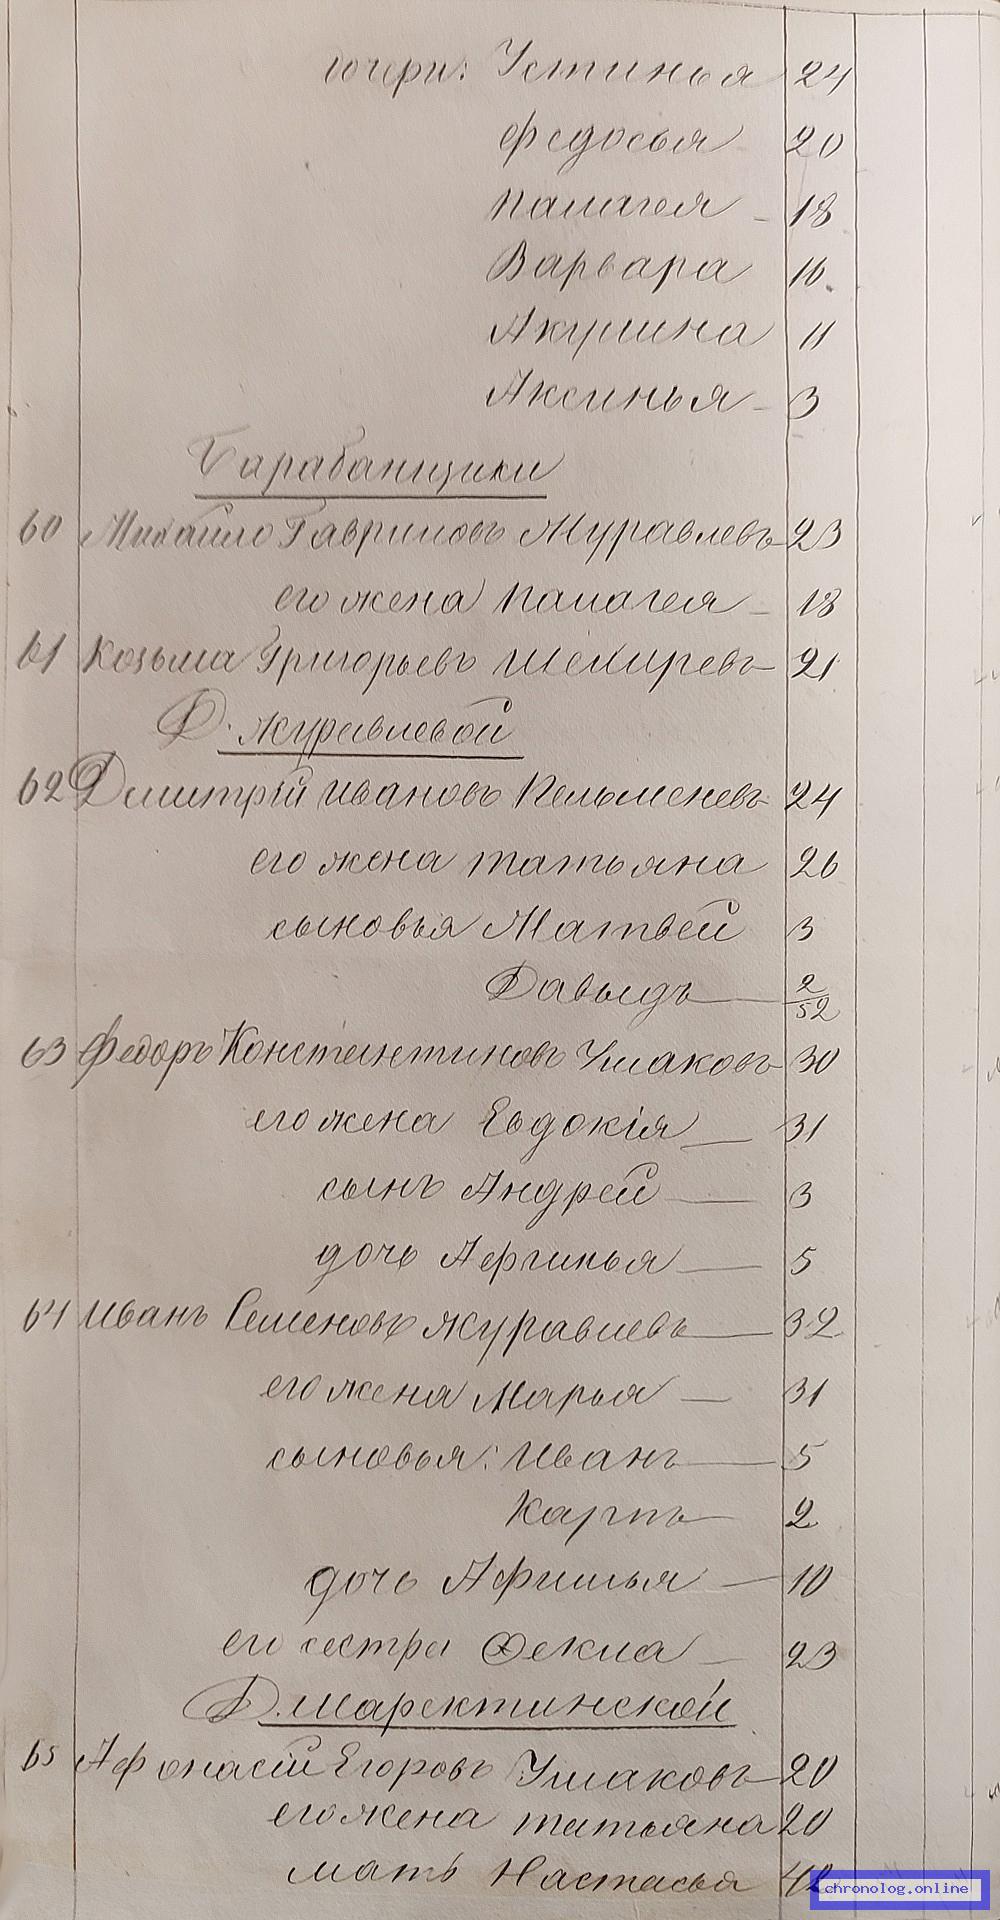 дочери: Устинья 24
Федосья 20
Палагея - 18
Варвара 16
Акулина 11
Аксинья - 3
Барабанщики
60 Михайло Гавриловъ Журавлевъ 23
его жена Палагея - 18
61 Козьма Григорьевъ 21
Д. Журавлевой
62 Дмитрій Ивановъ Пельменевъ 24
его жена Татьяна 26
сыновья Матвей 3
Давыдъ 2/52
63 Федоръ Константиновъ Ушаковъ 30
его жена Евдокія 31
сынъ Андрей 3
дочь 5
64 Иванъ Семеновъ Журавлевъ 32
его жена Марья - 31
сыновья: Иванъ 5
Карпъ 2
дочь Афимья - 10
его сестра Фекла - 23
Д. Шаректинской
65 Афонасій Егоровъ Ушаковъ 20
его жена Татьяна 20
мать Настасья 42
chronolog.online